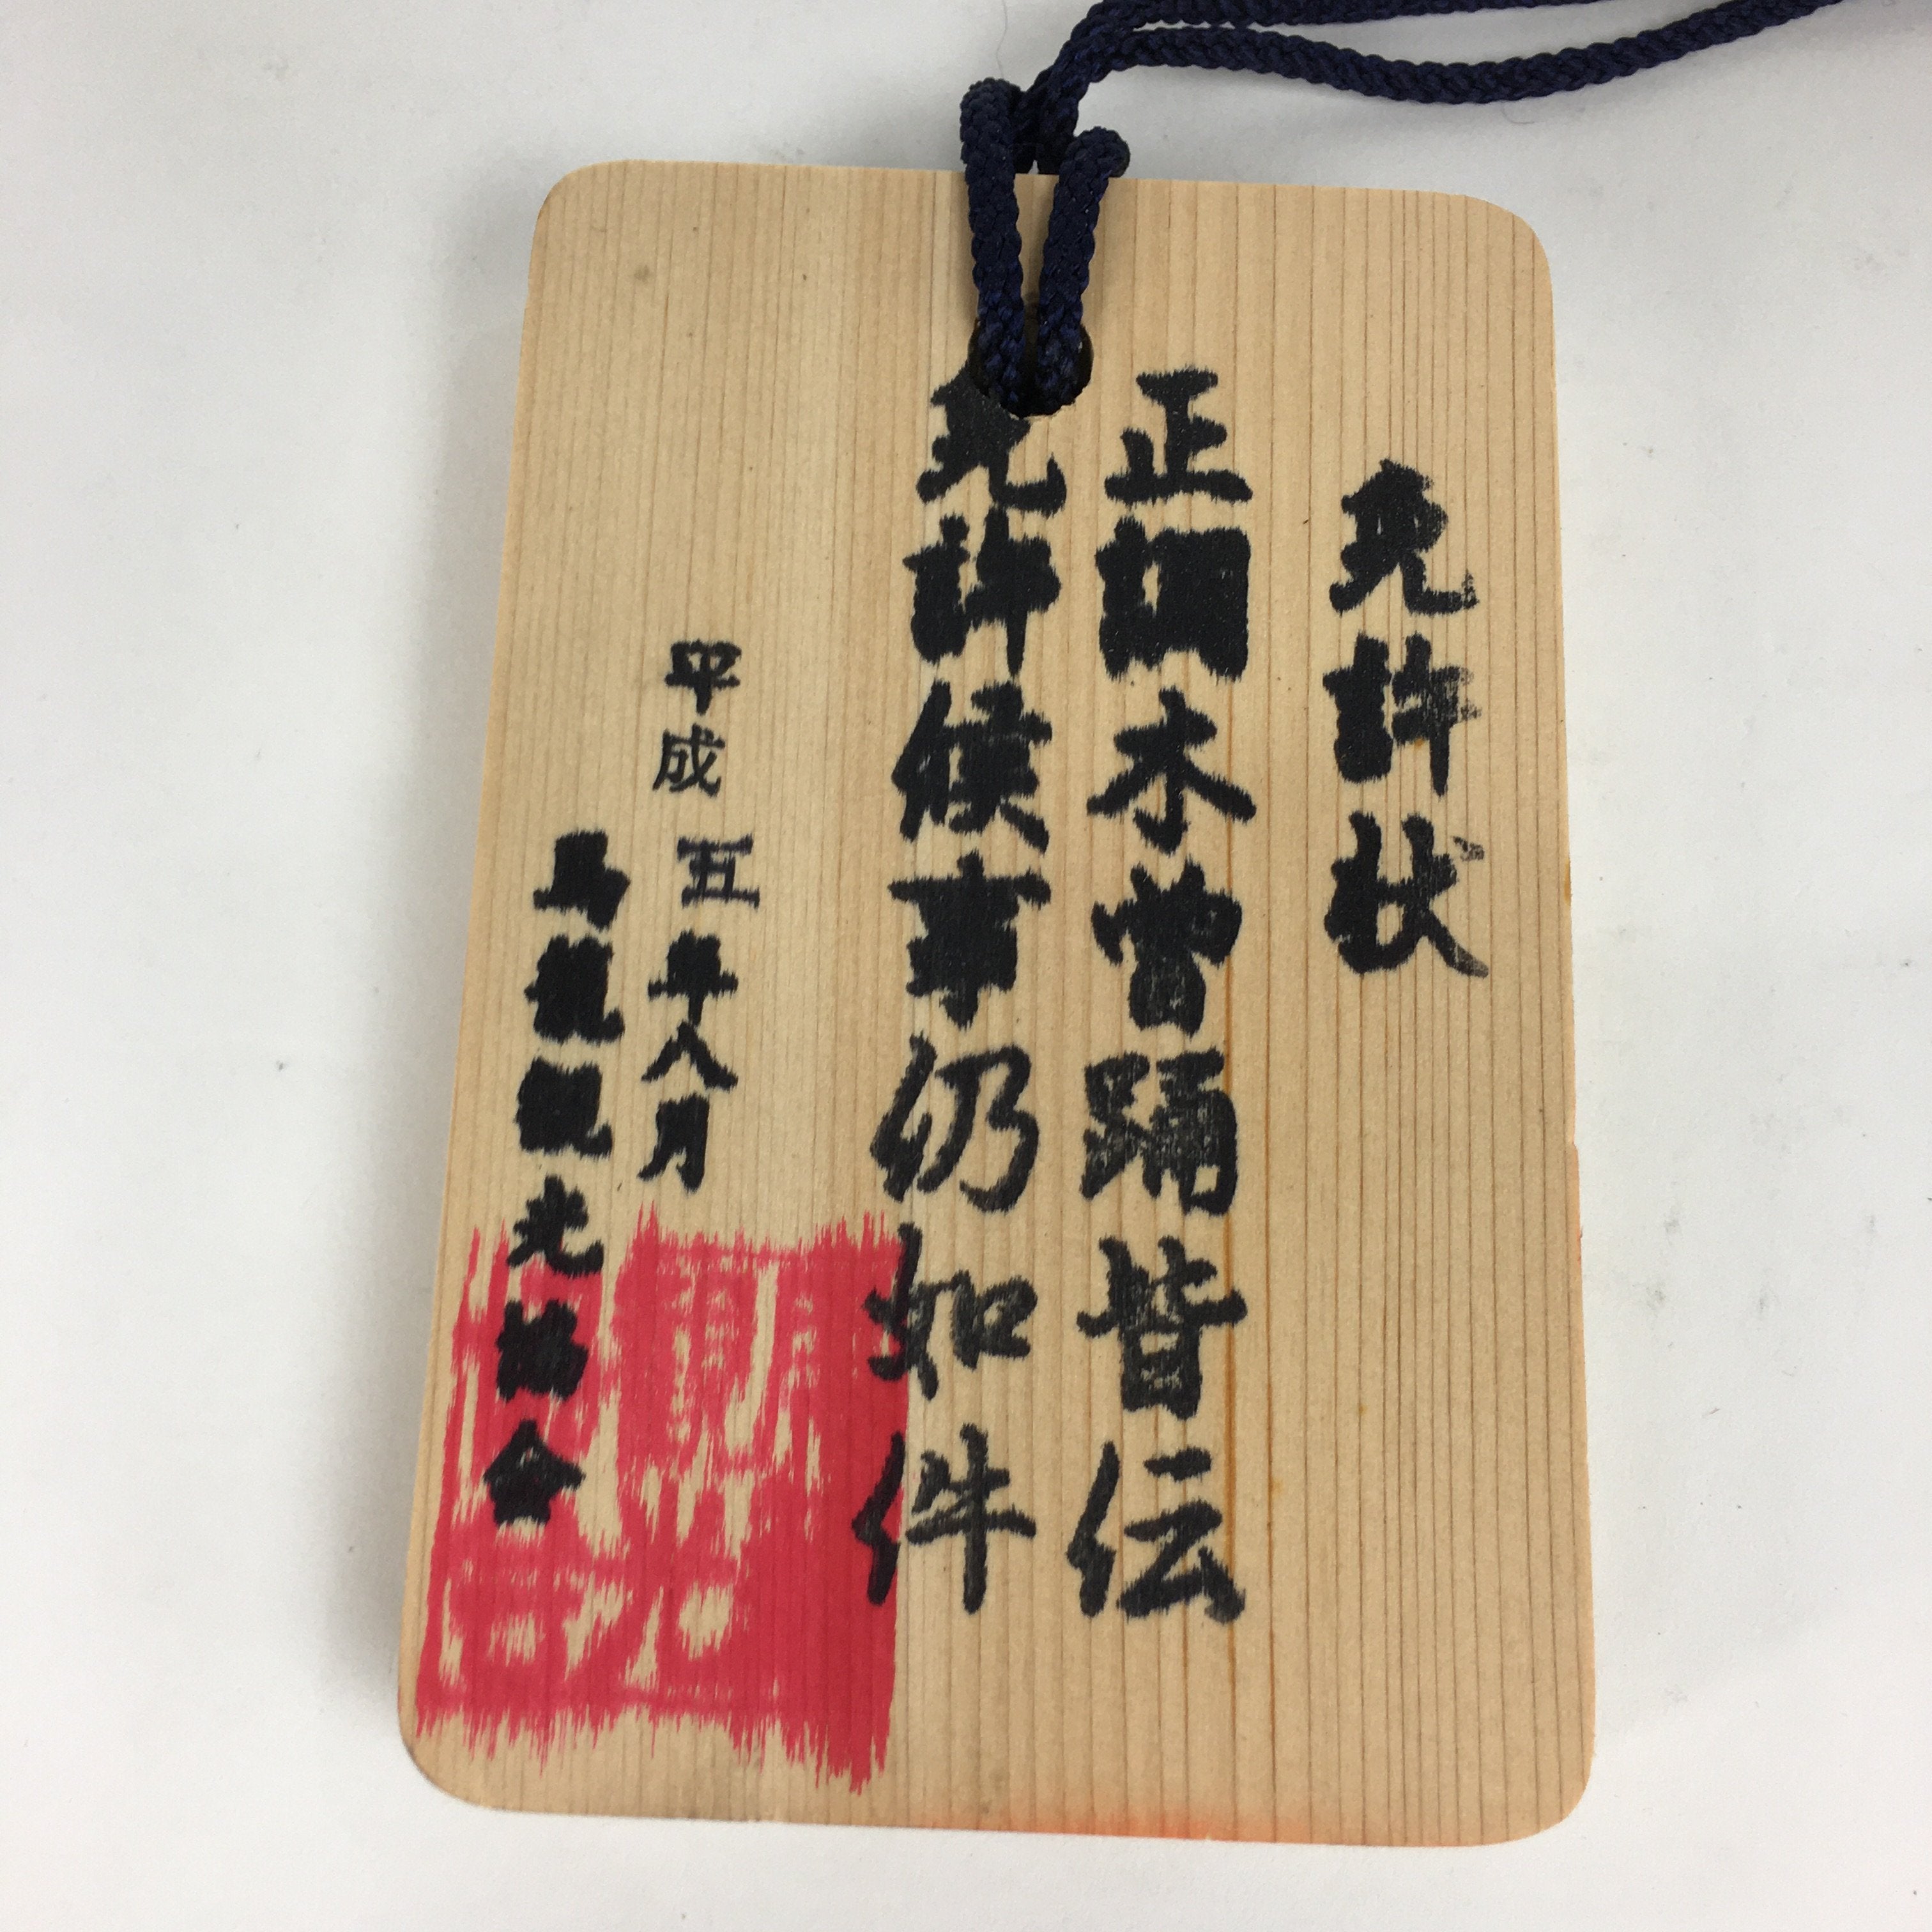 免許状
正調木曽踊皆伝
免許候事仍如件
平成五年八月
馬籠観光協会